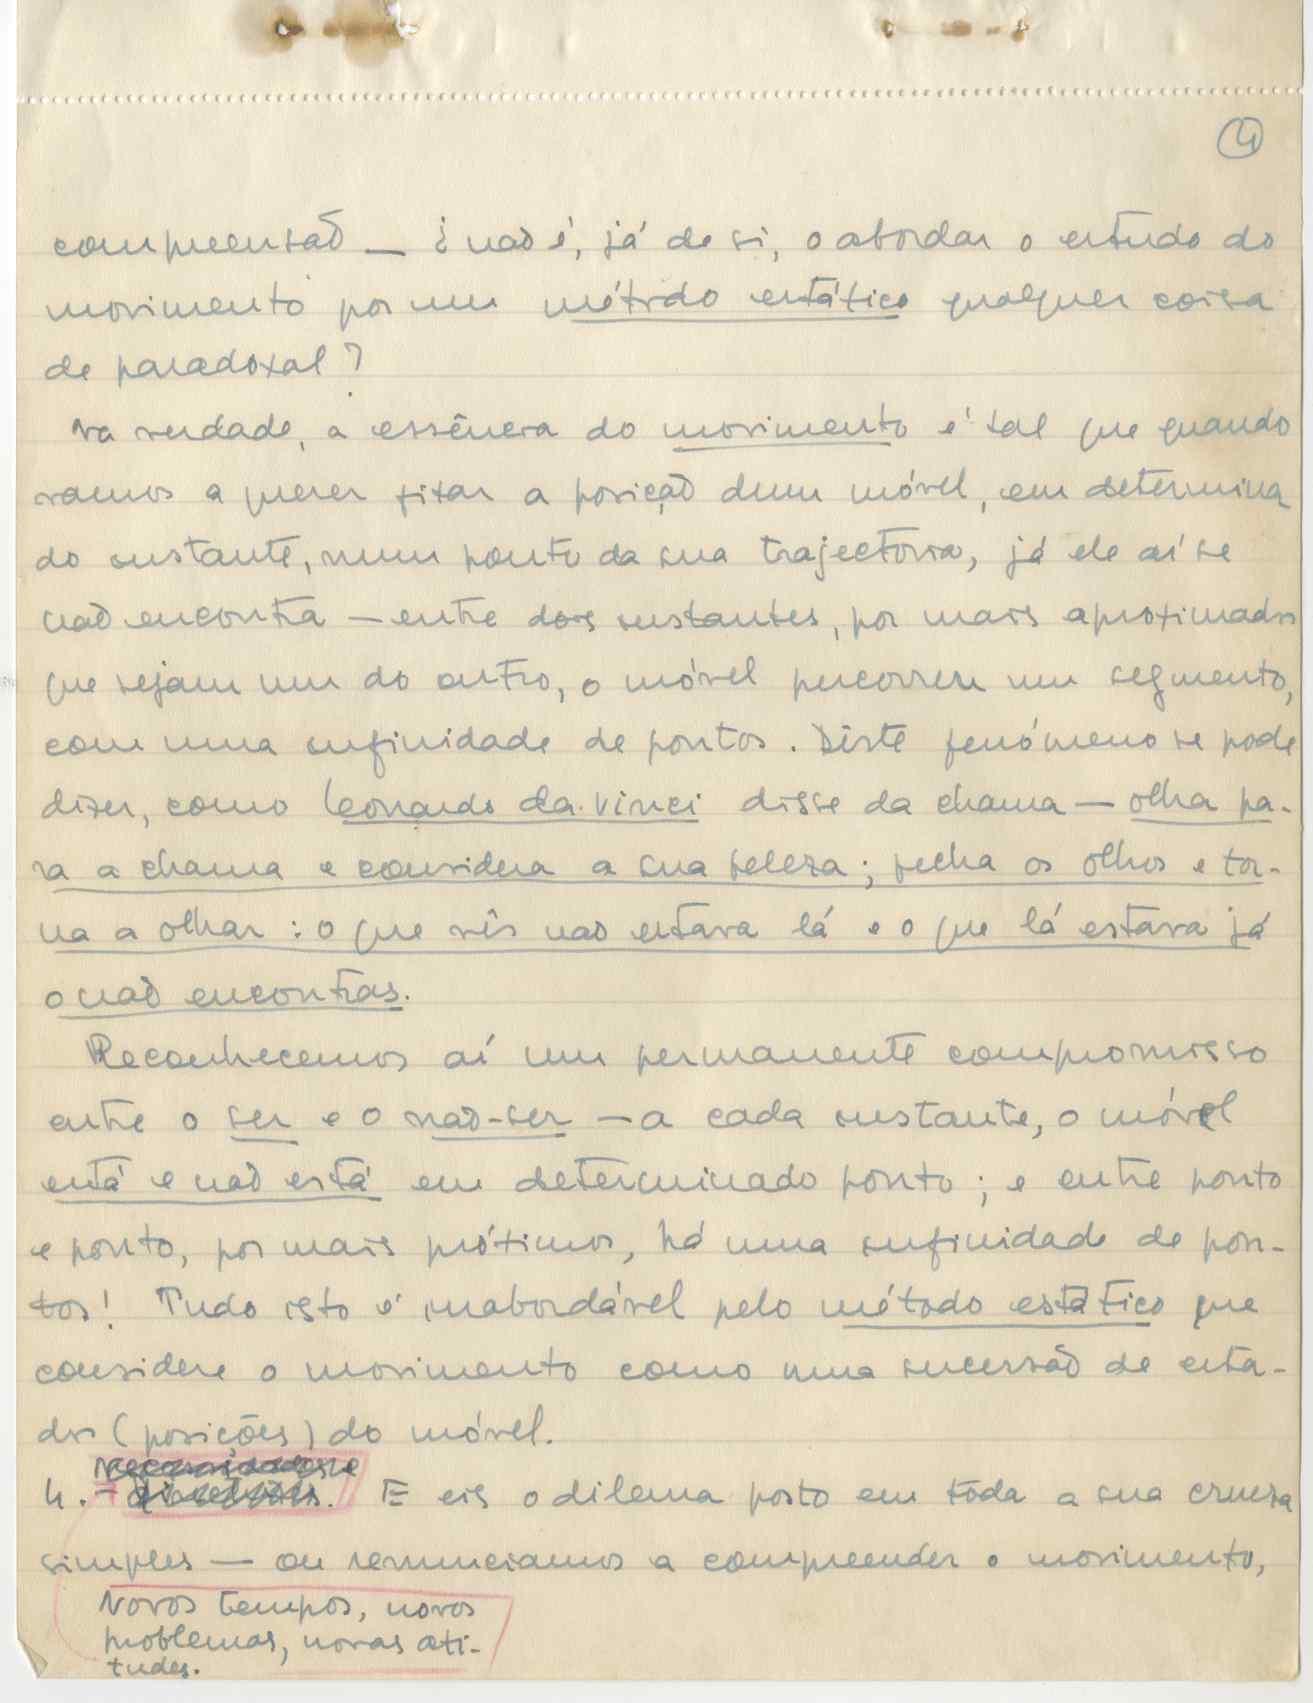 4
compreensão — ¿ não é, já de si, o abordar o estudo do
movimento por um método estático qualquer coisa
de paradoxal?
Na verdade, a essência do movimento é tal que quando
vamos a querer fixar a posição dum móvel, em determina
do instante, num ponto da sua trajectória, já ele aí se
não encontra — entre dois instantes, por mais aproximados
que sejam um do outro, o móvel percorreu um segmento,
com uma infinidade de pontos. Dêste fenómeno se pode
dizer, como Leonardo da Vinci disse da chama — olha pa-
ra a chama e considera a sua beleza; fecha os olhos e tor-
na a olhar: o que vês não estava lá e o que lá estava já
o não encontras.
Reconhecemos aí um permanente compromisso
entre o ser e o não-ser — a cada instante, o móvel
está e não está em determinado ponto; e entre ponto
e ponto, por mais próximos, há uma infinidade de pon-
tos! Tudo isto é inabordável pelo método estático que
considere o movimento como uma sucessão de esta-
dos (posições) do móvel.
4. - E eis o dilema posto em tôda a sua crueza
simples — ou renunciamos a compreender o movimento,
Novos tempos, novos
problemas, novas ati-
tudes.